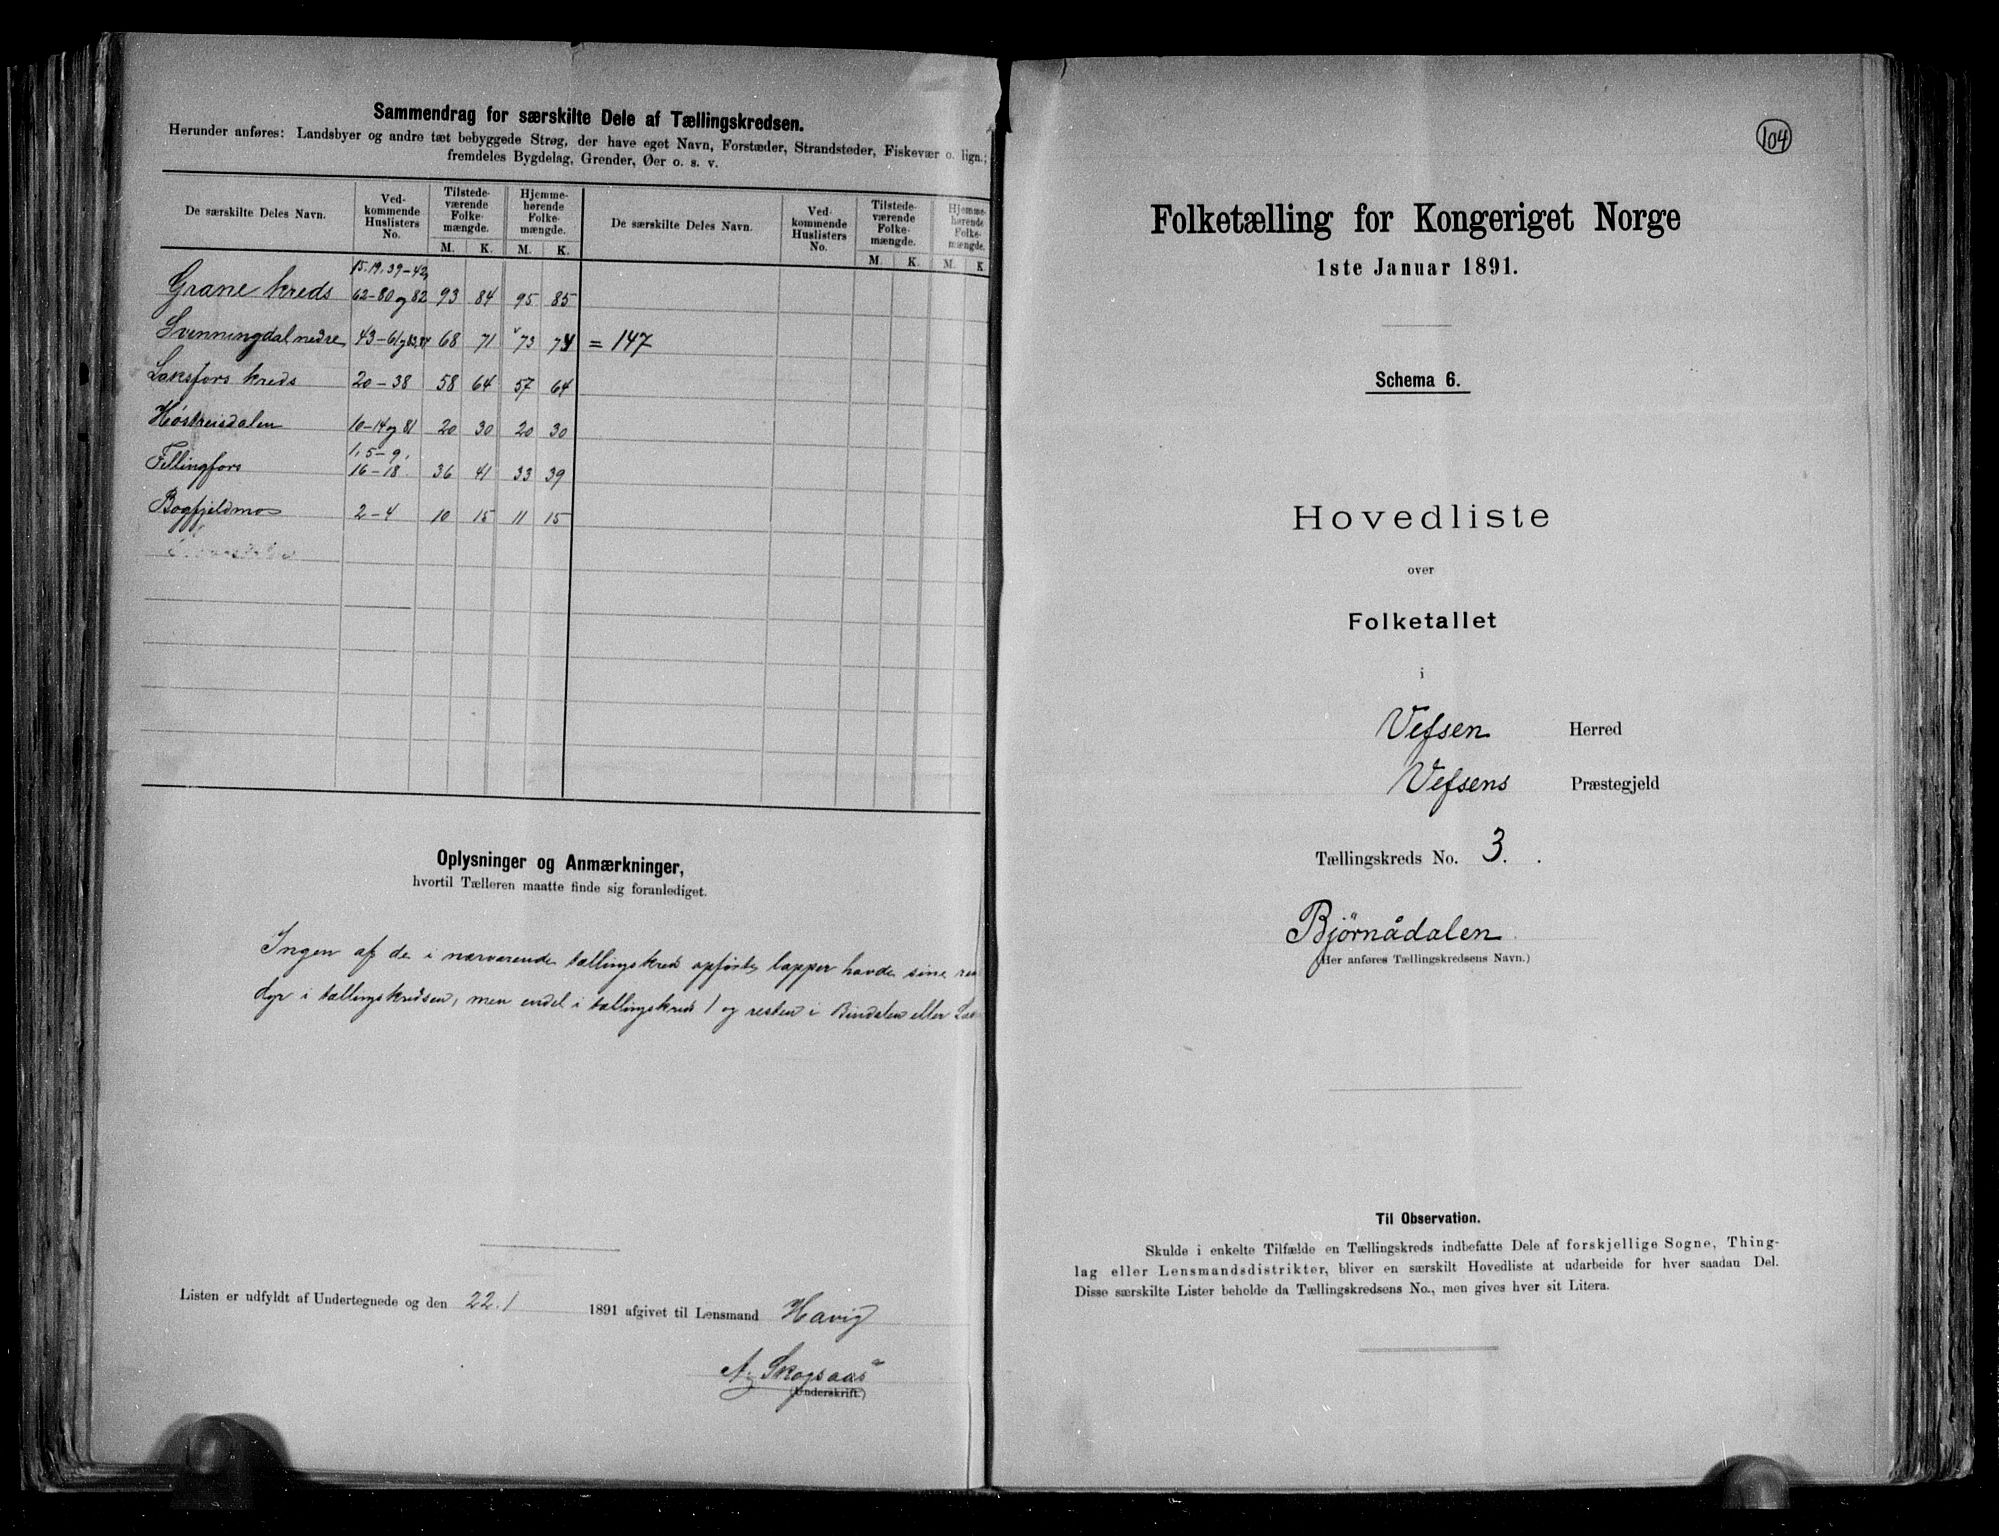 Sammendrag for særskilte Dele af Tællingskredsen.
Herunder anføres: Landsbyer og andre tæt bebyggede Strøg, der have eget Navn, Forstæder, Strandsteder, Fiskevær o. lign.;
fremdeles Bygdelag, Grender, Øer o. s. v.
De særskilte Deles Navn. Ved-kommende Huslisters No. Tilstede-værende Folke-mængde. Hjemme-hørende Folke-mængde. De særskilte Deles Navn. Ved-kommende Huslisters No. Tilstede-værende Folke-mængde. Hjemme-hørende Folke-mængde.
M. K. M. K. M. K. M. K
15. 19. 39-42,
Grane kreds 62-80 og 82 93 84 95 85
Svenningdal nedre 43-61 og 83,84 68 71 73 74 = 147
Laksfors kreds 20-38 58 64 57 64
10-14 og 81 20 30 20 30
1, 5-9,
Fellingfors 16-18. 36 41 33 39
Bogfjeldmo 2-4 10 15 11 15
Oplysninger og Anmærkninger,
hvortil Tælleren maatte finde sig foranlediget.
Ingen af de i nærværende tællingskreds opførte lapper havde sine
dyr i tællingskredsen, men endel i tællingskreds 1 og resten i Bindalen eller
Listen er udfyldt af Undertegnede og den 22. 1 1891 afgivet til Lensmand Havig
A. Skogsaas
(Underskrift.)
104
Folketælling for Kongeriget Norge
1ste Januar 1891.
Schema 6.
Hovedliste
over
Folketallet
i
Vefsen Herred
Vefsens Præstegjeld
Tællingskreds No. 3.
Bjørnådalen
(Her anføres Tællingskredsens Navn.)
Til Observation.
Skulde i enkelte Tilfælde en Tællingskreds indbefatte Dele af forskjellige Sogne, Thing-
lag eller Lensmandsdistrikter, bliver en særskilt Hovedliste at udarbeide for hver saadan Del.
Disse særskilte Lister beholde da Tællingskredsens No., men gives hver sit Litera.